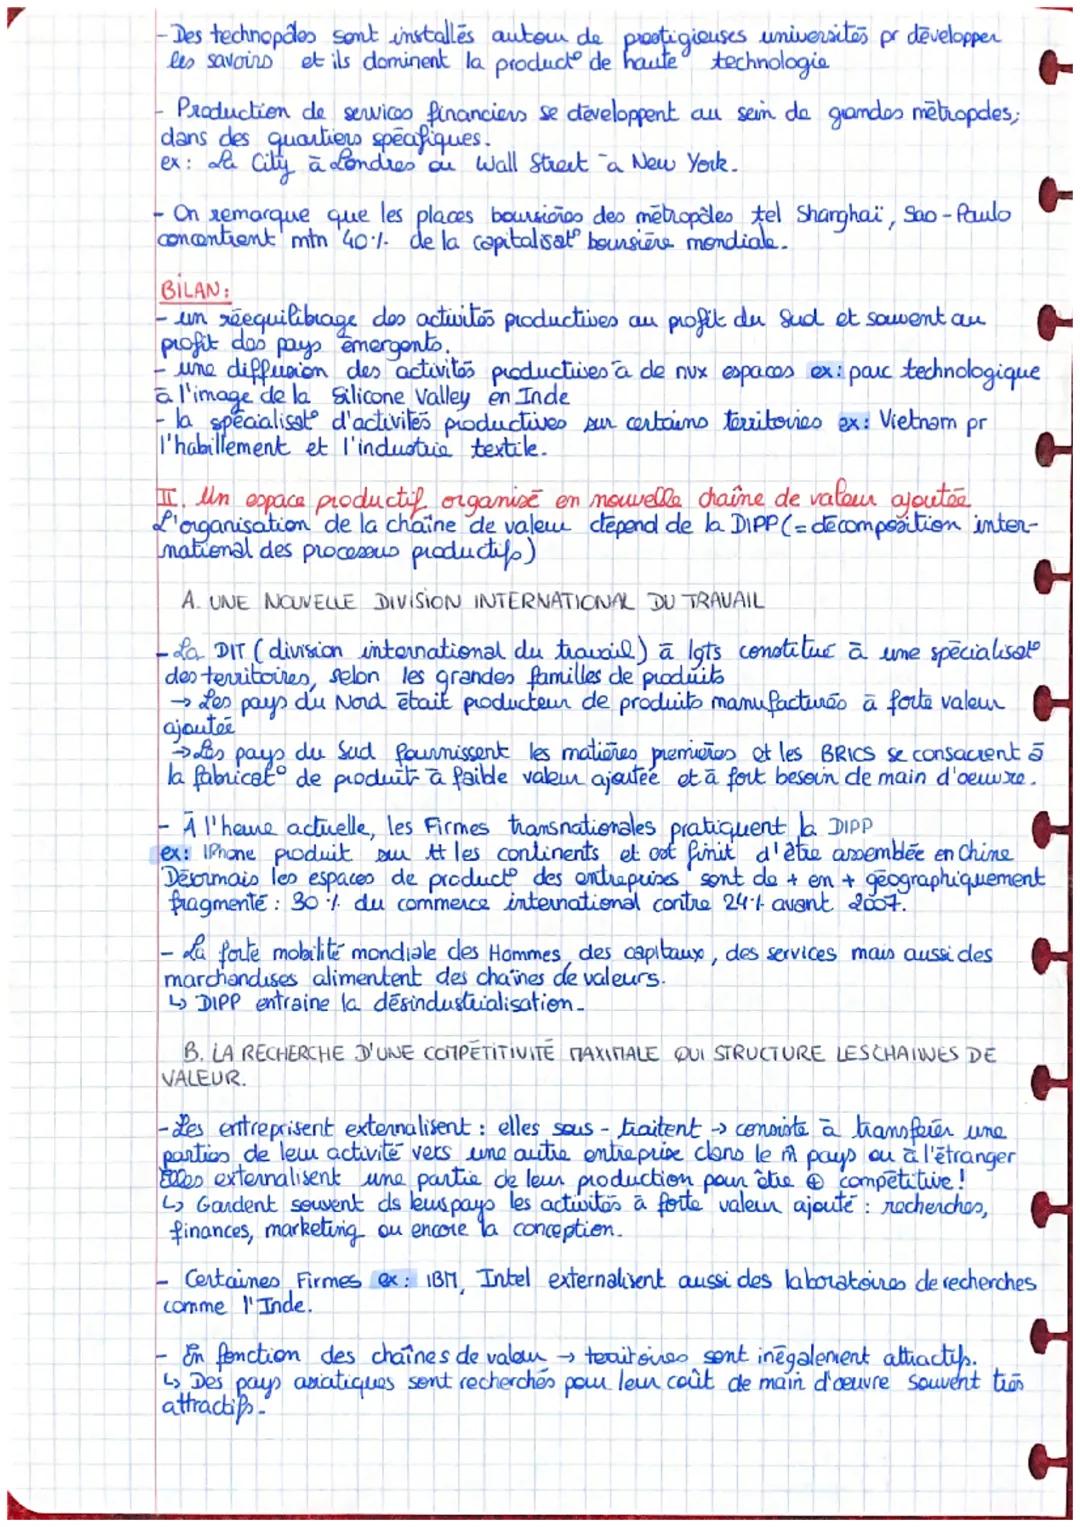 - Des technopôles sont installés autour de prestigieuses universités pr développer
les savoirs et ils dominent la product° de haute technologie
- Production de services financiers se développent au sein de grandes métropoles;
dans des quartiers spécifiques.
ex: La City à Londres ou Wall Street à New York.
- On remarque que les places boursières des métropôles tel Shanghaï, Sao-Paulo
concentrent mtn 40% de la capitalisat° boursière mondiale.
BILAN:
- un rééquilibrage des activités productives au profit du Sud et souvent au
profit des pays émergents.
- une diffusion des activités productives à de nvx espaces ex: parc technologique
à l'image de la Silicone Valley en Inde
- la spécialisat° d'activités productives sur certains territoires ex: Vietnam pr
l'habillement et l'industrie textile.
II. Un espace productif organisé en nouvelle chaîne de valeur ajoutée
L'organisation de la chaîne de valeur dépend de la DIPP (= décomposition inter-
national des processus productifs)
A. UNE NOUVELLE DIVISION INTERNATIONAL DU TRAVAIL
- La DIT (division international du travail) à lgts constitué à une spécialisat°
des territoires, selon les grandes familles de produits
→ Les pays du Nord était producteur de produits manufacturés à forte valeur
ajoutée
→ Les pays du Sud fournissent les matières premières et les BRICS se consacrent à
la fabricat° de produit à faible valeur ajoutée et à fort besoin de main d'oeuvre.
- À l'heure actuelle, les Firmes transnationales pratiquent la DIPP
ex: IPhone produit sur tt les continents et est finit d'être assemblée en Chine
Désormais les espaces de product° des entreprises sont de + en + géographiquement
fragmenté : 30 % du commerce international contre 24% avant 2007.
- La forte mobilité mondiale des Hommes, des capitaux, des services mais aussi des
marchandises alimentent des chaînes de valeurs.
↳ DIPP entraine la désindustrialisation.
B. LA RECHERCHE D'UNE COMPÉTITIVITÉ MAXIMALE QUI STRUCTURE LES CHAINES DE
VALEUR.
- Les entreprisent externalisent : elles sous-traitent → consiste à transférer une
parties de leur activité vers une autre entreprise dans le m̂ pays ou à l'étranger
Elles externalisent une partie de leur production pour être ⊕ compétitive!
↳ Gardent souvent ds leurs pays les activités à forte valeur ajouté : recherches,
finances, marketing ou encore la conception.
- Certaines Firmes ex: IBM, Intel externalisent aussi des laboratoires de recherches
comme l'Inde.
- En fonction des chaînes de valeur → territoires sont inégalement attractifs.
↳ Des pays asiatiques sont recherchés pour leur coût de main d'œuvre souvent très
attractifs.